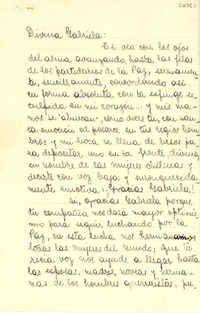 Divina Gabriela:
Te veo con los ojos
del alma avanzando, hasta las filas
de los partidarios de la Paz, serenamen-
te, sencillamente, concordando así
en forma absoluta con tu esfinge es-
culpida en mi corazón... y mis ma-
nos se "ahuecan" como dices tú, con san-
ta emoción al posarse en tus regios hom-
bros y mi boca se llena de besos pa-
ra depositar uno en tu frente divina,
en nombre de las mujeres chilenas y
decirte con voz baja y
emotiva: ¡Gracias Gabriela!
Si, gracias Gabriela porque
tu compañía nos dará mayor optimis-
mo para seguir luchando por la
Paz, en esta lucha nos hermanamos
todas las mujeres del mundo; que tu
recia voz nos ayude a llegar hasta
las esposas, madres, novias y herma-
nas de los hombres guerreristas, pa-